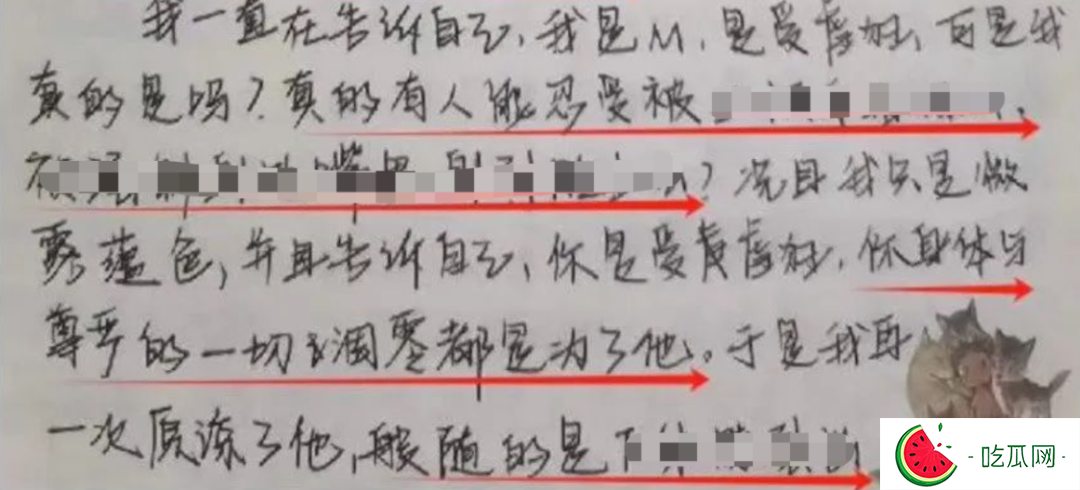 我一直在告诉自己,我是M,是受虐狂,可是我
真的是吗?真的有人能忍受被
?况且我只是微
露蕴色,并且告诉自己,你是受虐狂,你身体与
尊严的一切凋零都是为了他。于是我再
一次原谅了他,般随的是下
-吃瓜网-